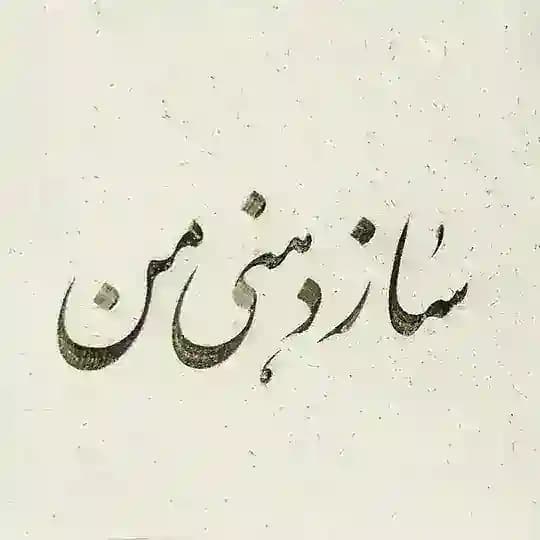 ساز دهنی من